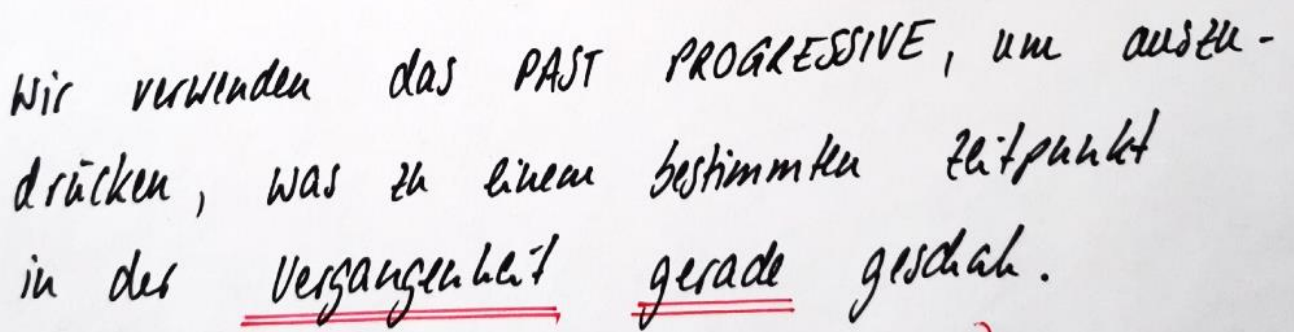 Wir verwenden das PAST PROGRESSIVE, um auszu-
drücken, was zu einem bestimmten Zeitpunkt
in der Vergangenheit gerade geschah.